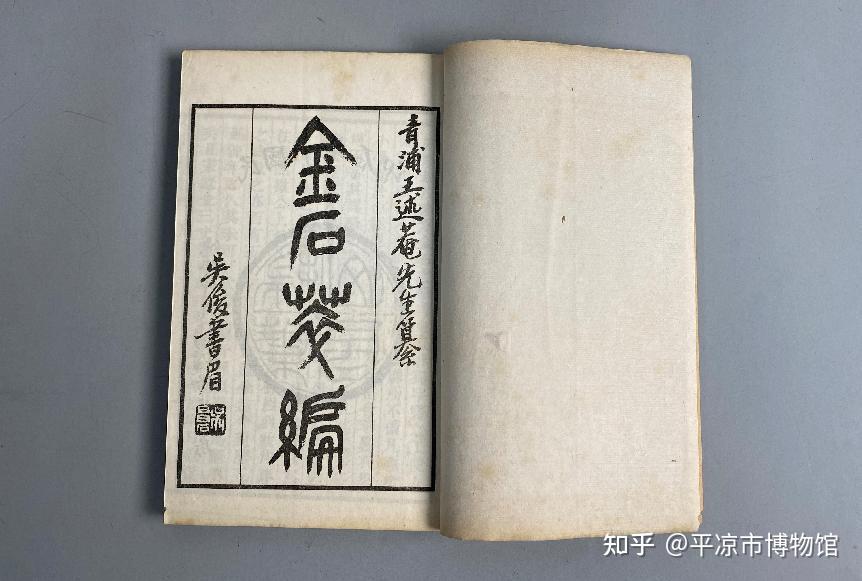 青浦王述菴先生篹
金石萃編
吳俊書眉
知乎 @平凉市博物馆